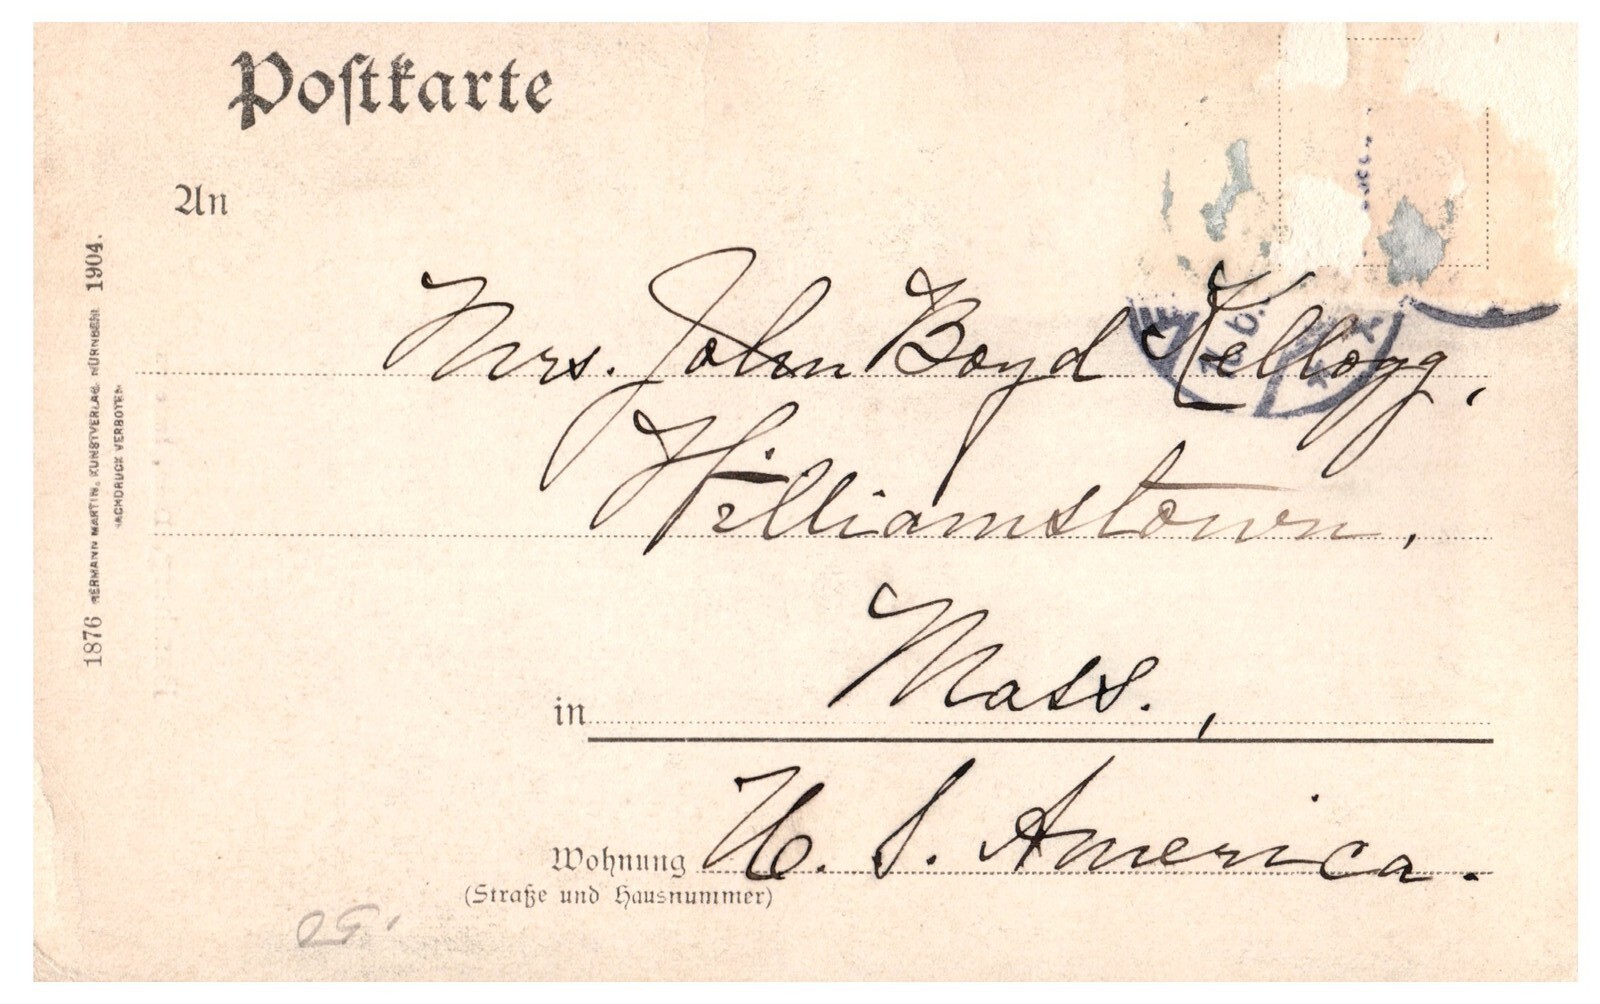 Postkarte
An
Mrs. John Boyd Kellogg,
Williamstown,
in Mass.,
Wohnung U. S. America.
(Straße und Hausnummer)
1876 HERMANN MARTIN, KUNSTVERLAG, NÜRNBERG 1904.
NACHDRUCK VERBOTEN
.50